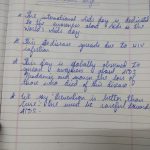 * The international aids day is dedicated
to the awareness about aids is the
world's aids day.
* This disease spreads due to HIV
infection
* This day is globally observed to
spread awareness about AIDS
Epidemic and mourn the loss of
those who died of this disease
* We say Prevention is better than
cure. One must be careful towards
AIDS.